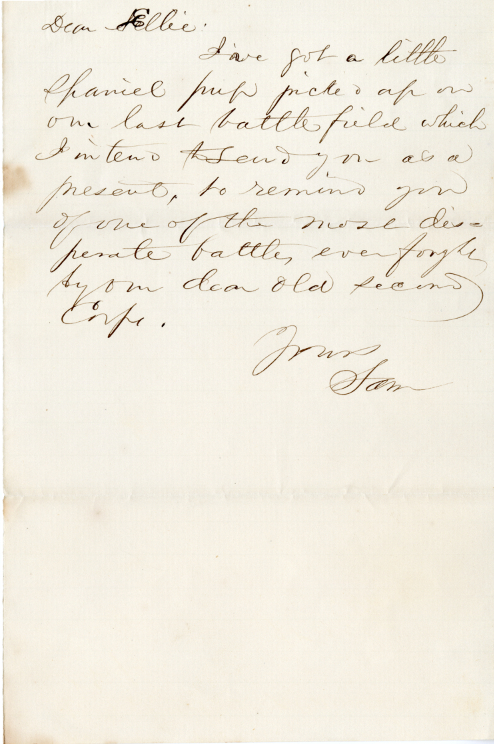 Dear Nellie.
I've got a little
spaniel pup picked up on
our last battlefield which
I intend to send you as a
present, to remind you
of one of the most des=
perate battles ever fought
by our dear old second
Corps.
Yours
Sam